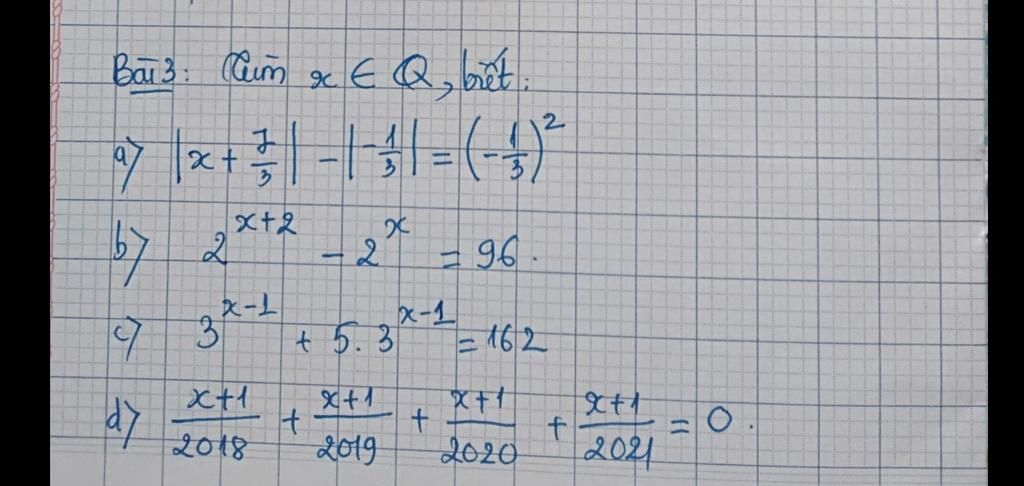 Bài 3: Tìm x ∈ Q, biết:
a) |x + 7/3| - |-1/3| = (-1/3)²
b) 2^(x+2) - 2^x = 96.
c) 3^(x-1) + 5.3^(x-1) = 162
d) (x+1)/2018 + (x+1)/2019 + (x+1)/2020 + (x+1)/2021 = 0.